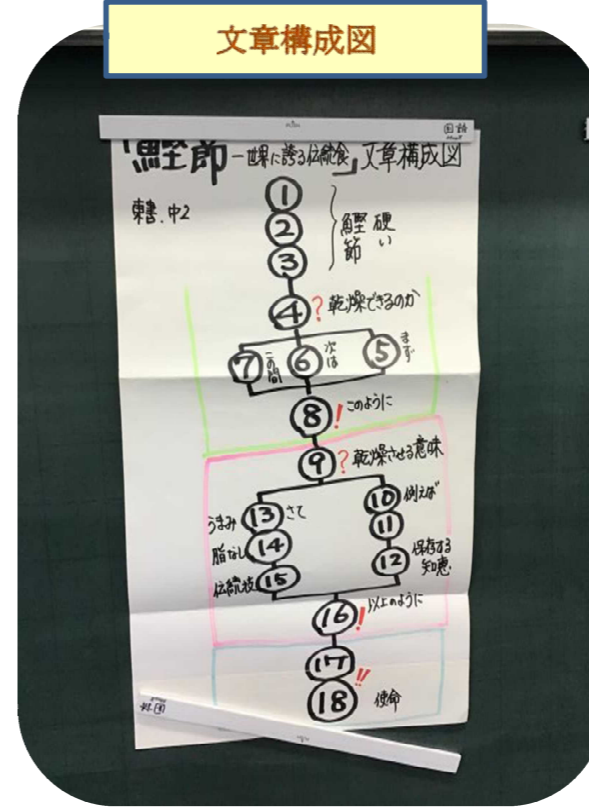 文章構成図
国語
「鰹節―世界に誇る伝統食」文章構成図
東書.中2
①
②
③
鰹節
硬い
④ ? 乾燥できるのか
⑤ まず
⑥ 次は
⑦ この間
⑧ ! このように
⑨ ? 乾燥させる意味
⑩ 例えば
⑪
⑫ 保存する
知恵
うまみ ⑬ さて
脂なし ⑭
伝統技 ⑮
⑯ ! 以上のように
⑰
!!
⑱ 使命